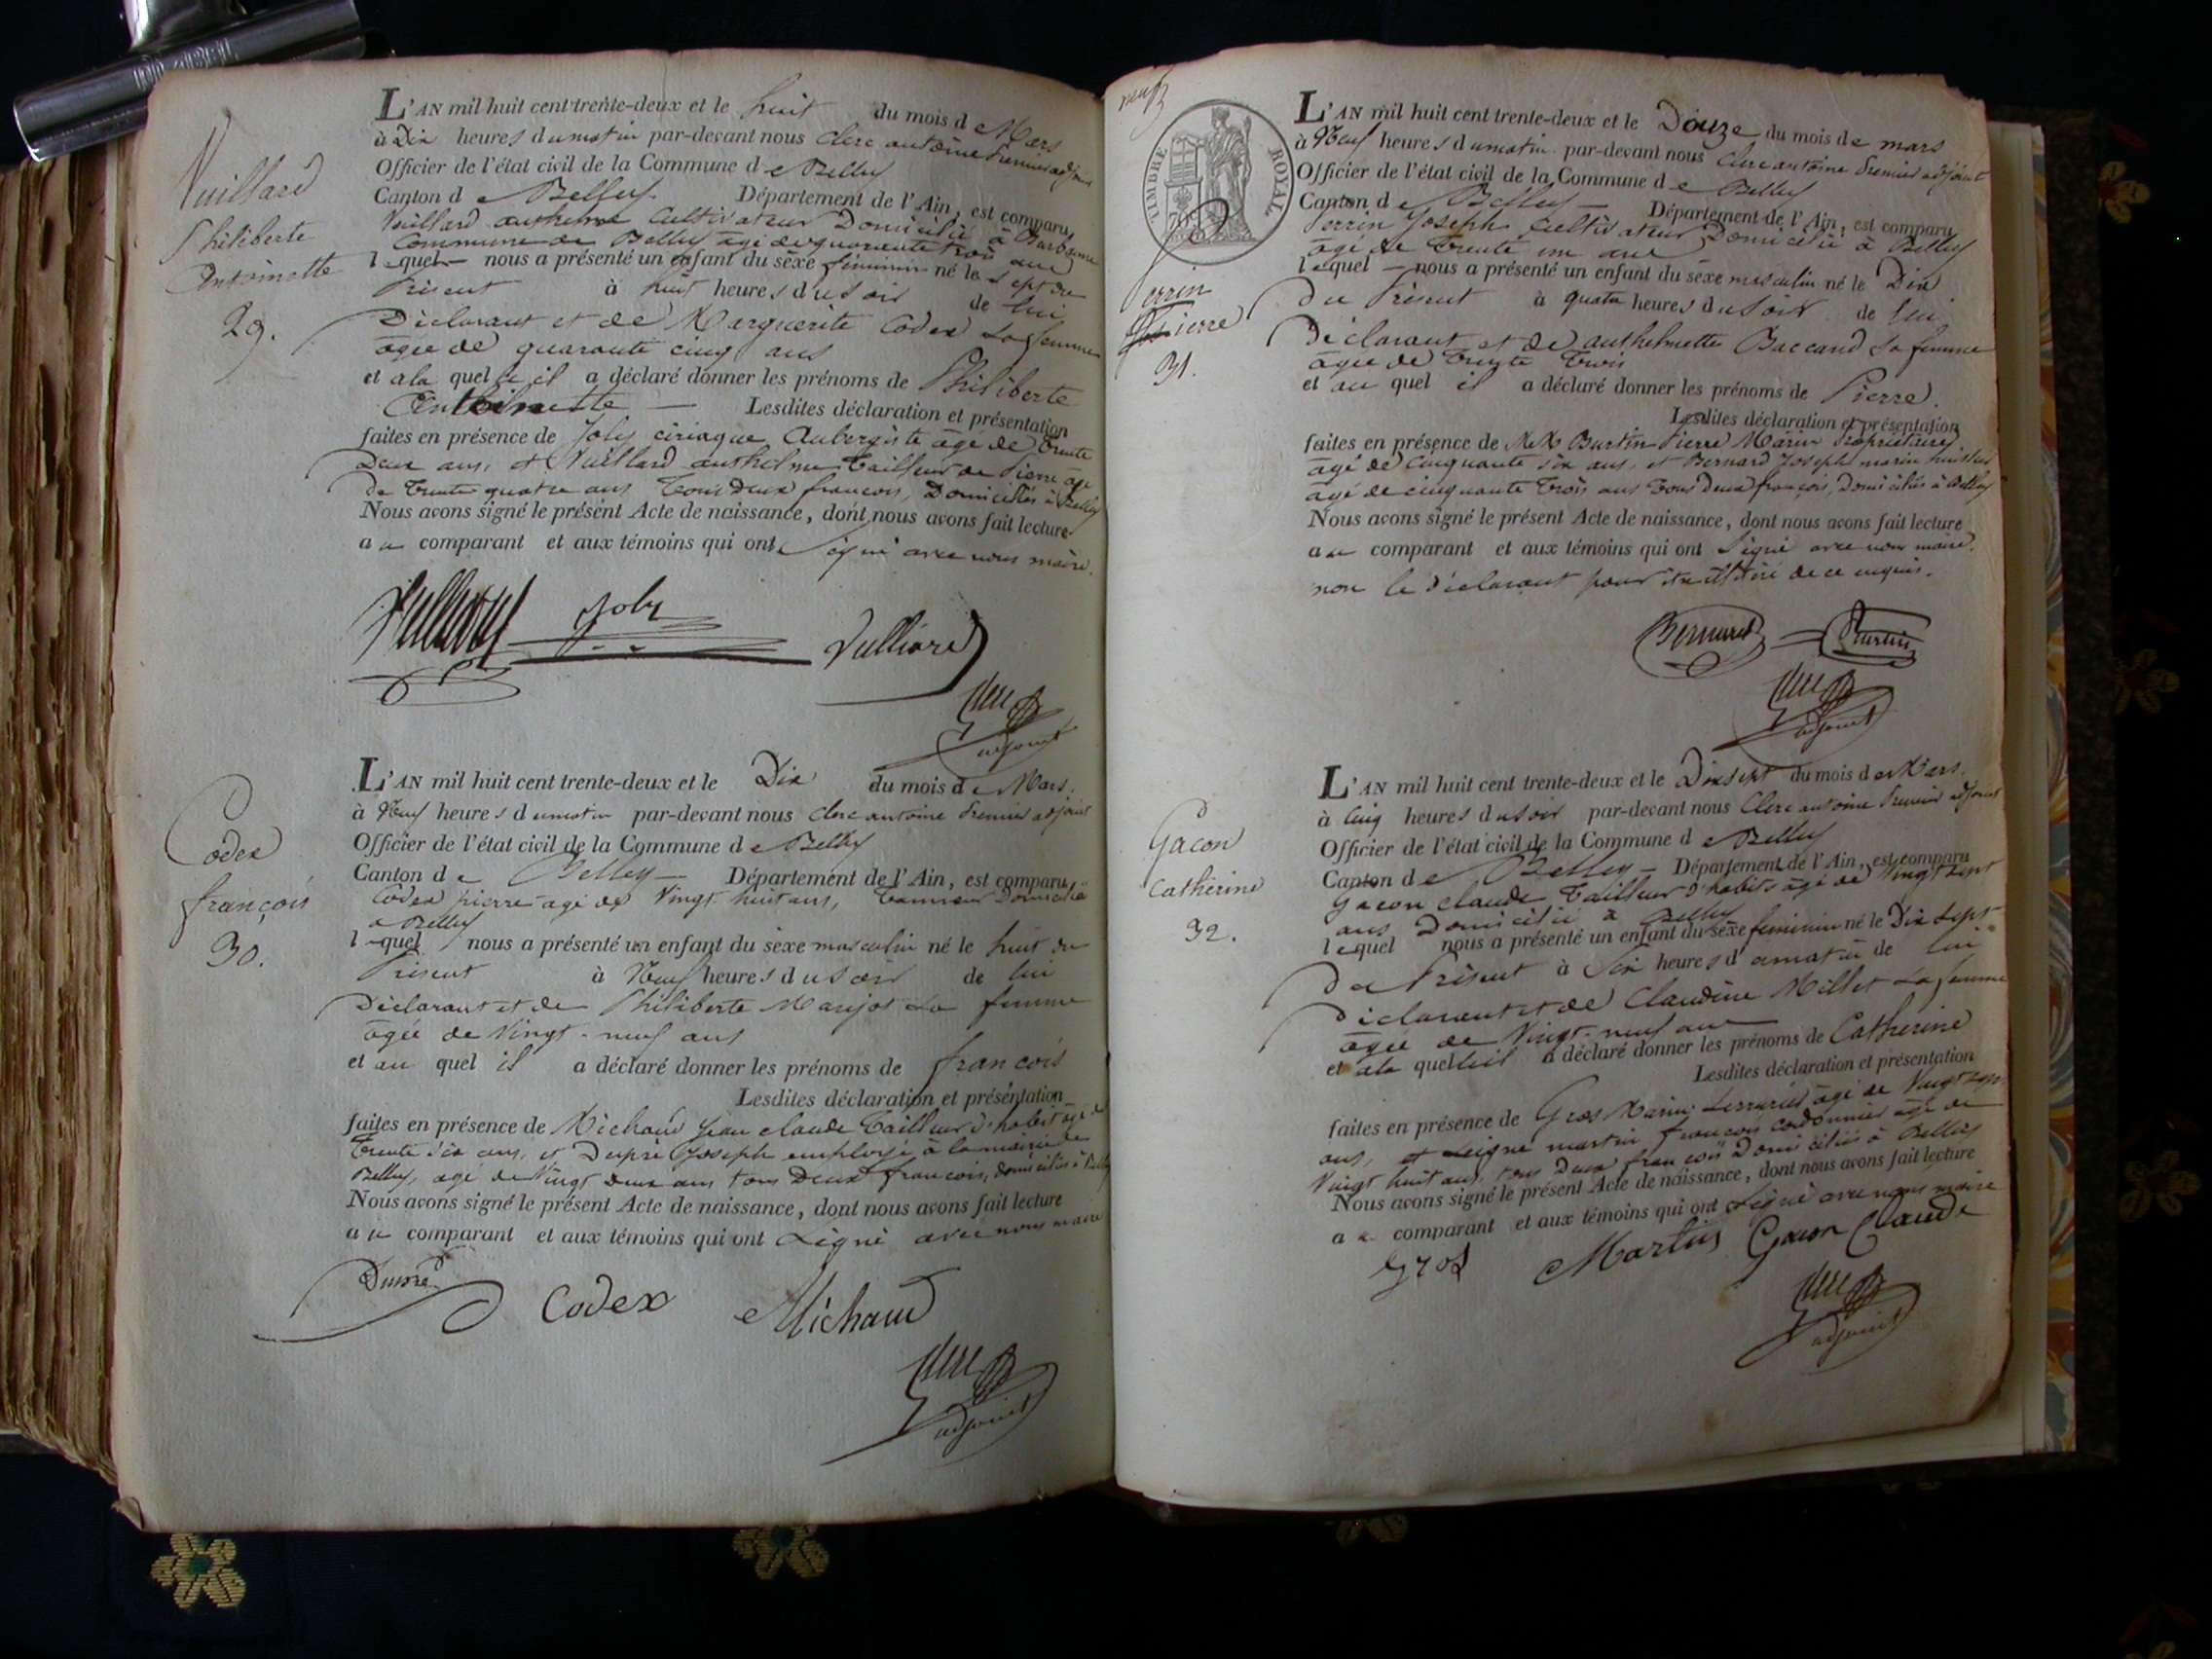 L'AN mil huit cent trente-deux et le huit du mois de Mars
à Dix heures du matin par-devant nous Clerc antoine Premier adjoint
Officier de l'état civil de la Commune de Belley
Canton de Belley. Département de l'Ain, est comparu
Vuillard anthelme Cultivateur Domicilié à
Commune de Belley âgé de quarente trois ans
lequel nous a présenté un enfant du sexe féminin né le sept du
Présent à huit heures du soir de lui
Déclarant et de Marguerite Codex Sa femme
âgée de quarante cinq ans
et a la quelle il a déclaré donner les prénoms de Philiberte
Antoinette Lesdites déclaration et présentation
faites en présence de Joly ciriaque Aubergiste âgé de Trente
Deux ans, et Vuillard anthelme Tailleur de Pierre âgé
de Trente quatre ans Tous Deux françois, Domiciliés à Belley
Nous avons signé le présent Acte de naissance, dont nous avons fait lecture
au comparant et aux témoins qui ont Signé avec nous maire.
Joly Vulliard
adjoint
Vuillard
Philiberte
Antoinette
29.
L'AN mil huit cent trente-deux et le Dix du mois de Mars.
à Neuf heures du matin par-devant nous Clerc antoine Premier adjoint
Officier de l'état civil de la Commune de Belley
Canton de Belley Département de l'Ain, est comparu
Codex pierre âgé de Vingt huit ans, Domicilié
a Belley
lequel nous a présenté un enfant du sexe masculin né le huit du
Présent à Neuf heures du soir de lui
Déclarant et de Philiberte Marijot Sa femme
âgée de Vingt-neuf ans
et au quel il a déclaré donner les prénoms de françois
Lesdites déclaration et présentation
faites en présence de Michaud Jean claude Tailleur d'habit âgé de
Trente Six ans, et Dupré Joseph employé à la mairie de
Belley, âgé de Vingt deux ans tous Deux françois, domiciliés à Belley
Nous avons signé le présent Acte de naissance, dont nous avons fait lecture
au comparant et aux témoins qui ont Signé avec nous maire
Dupré Codex Michaud
adjoint
Codex
françois
30.
neuf
TIMBRE ROYAL
L'AN mil huit cent trente-deux et le Douze du mois de mars
à Neuf heures du matin par-devant nous Clerc antoine Premier adjoint
Officier de l'état civil de la Commune de Belley
Canton de Belley Département de l'Ain, est comparu
Perrin Joseph Cultivateur Domicilié à Belley
âgé de Trente un ans
lequel nous a présenté un enfant du sexe masculin né le Dix
Du Présent à quatre heures du soir de lui
Déclarant et de anthelmette Baccard Sa femme
âgée de Trente Trois
et au quel il a déclaré donner les prénoms de Pierre.
Lesdites déclaration et présentation
faites en présence de MM. Burtin Pierre Marin Propriétaire
âgé de cinquante six ans, et Bernard Joseph marin huissier
âgé de cinquante Trois ans Tous Deux françois, Domiciliés à Belley
Nous avons signé le présent Acte de naissance, dont nous avons fait lecture
au comparant et aux témoins qui ont Signé avec nous maire.
non le Déclarant pour être illitéré de ce enquis.
Bernard Burtin
adjoint
Perrin
Pierre
31.
L'AN mil huit cent trente-deux et le Dix sept du mois de Mars.
à Cinq heures du soir par-devant nous Clerc antoine Premier adjoint
Officier de l'état civil de la Commune de Belley
Canton de Belley Département de l'Ain, est comparu
Gacon claude Tailleur d'habits âgé de Vingt Sept
ans Domicilié à Belley
lequel nous a présenté un enfant du sexe feminin né le Dix Sept
Du Présent à Six heures du matin de lui
Déclarant et de Claudine Millet Sa femme
âgée de Vingt-neuf ans
et a la quelle il a déclaré donner les prénoms de Catherine
Lesdites déclaration et présentation
faites en présence de Gros Marin Serrurier âgé de Vingt Sept
ans, et martin françois cordonnier âgé de
Vingt huit ans, tous Deux françois Domiciliés à Belley
Nous avons signé le présent Acte de naissance, dont nous avons fait lecture
au comparant et aux témoins qui ont Signé avec nous maire
Gros Martin Gacon Claude
adjoint
Gacon
Catherine
32.